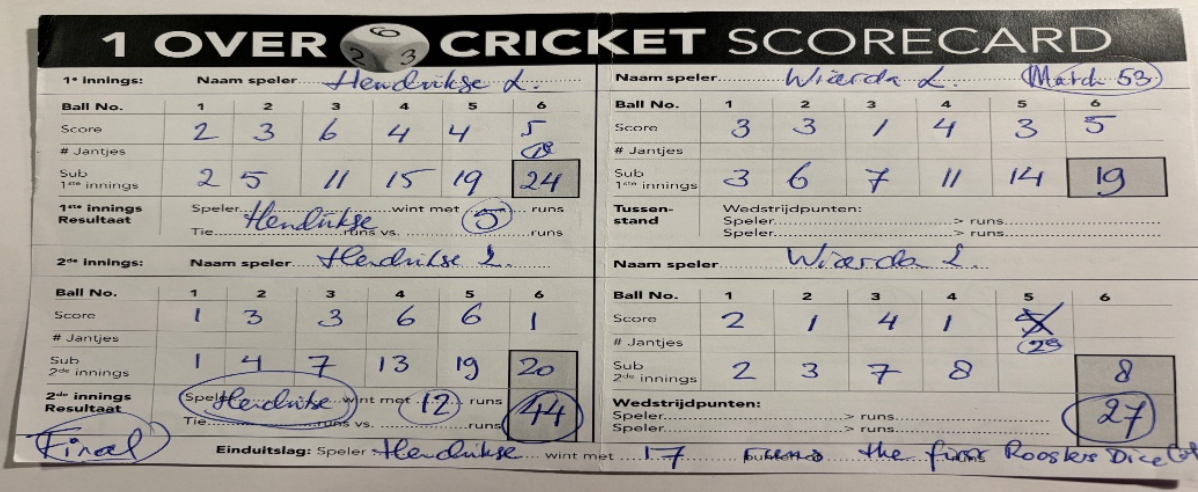 1 OVER 6 2 3 CRICKET SCORECARD
1e innings: Naam speler Hendrikse L. Naam speler Wiarda L. Match 53
Ball No. 1 2 3 4 5 6 Ball No. 1 2 3 4 5 6
Score 2 3 6 4 4 5 Score 3 3 1 4 3 5
# Jantjes # Jantjes
Sub 1ste innings 2 5 11 15 19 24 Sub 1ste innings 3 6 7 11 14 19
1ste innings Resultaat Speler Hendrikse wint met 5 runs Tussen-stand Wedstrijdpunten:
Speler > runs
Tie runs vs. runs Speler > runs
2de innings: Naam speler Hendrikse L. Naam speler Wiarda L.
Ball No. 1 2 3 4 5 6 Ball No. 1 2 3 4 5 6
Score 1 3 3 6 6 1 Score 2 1 4 1 5
# Jantjes # Jantjes
Sub 2de innings 1 4 7 13 19 20 Sub 2de innings 2 3 7 8 8
2de innings Resultaat Speler Hendrikse wint met 12 runs 44 Wedstrijdpunten: 27
Speler > runs
Tie runs vs. runs Speler > runs
Final Einduitslag: Speler Hendrikse wint met 17 runs the first Roosters Dice